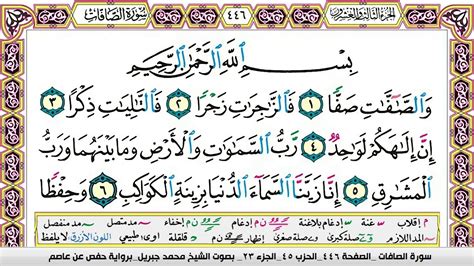 الجزء الثالث والعشرون
٤٤٦
سورة الصافات
بِسْمِ ٱللَّهِ ٱلرَّحْمَٰنِ ٱلرَّحِيمِ
وَٱلصَّٰٓفَّٰتِ صَفًّا ١ فَٱلزَّٰجِرَٰتِ زَجْرًا ٢ فَٱلتَّٰلِيَٰتِ ذِكْرًا ٣
إِنَّ إِلَٰهَكُمْ لَوَٰحِدٌ ٤ رَّبُّ ٱلسَّمَٰوَٰتِ وَٱلْأَرْضِ وَمَا بَيْنَهُمَا وَرَبُّ
ٱلْمَشَٰرِقِ ٥ إِنَّا زَيَّنَّا ٱلسَّمَآءَ ٱلدُّنْيَا بِزِينَةٍ ٱلْكَوَاكِبِ ٦ وَحِفْظًا
م إقلاب غنة إدغام بلاغنة إدغام إخفاء مد متصل مد منفصل
المد اللازم صلة كبرى صلة صغرى إظهار قلقلة طبيعي اللون الأزرق لا يلفظ
سورة الصافات _ الصفحة ٤٤٦_ الحزب ٤٥_ الجزء ٢٣ _ بصوت الشيخ محمد جبريل_ برواية حفص عن عاصم